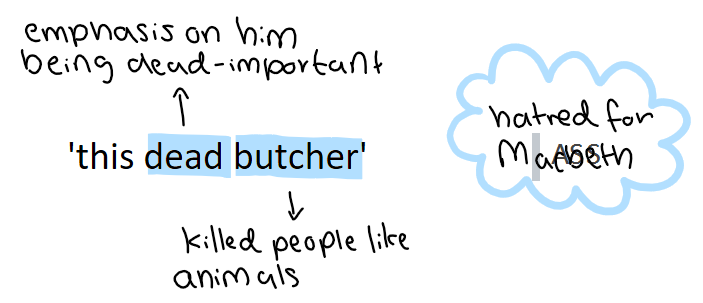 emphasis on him
being dead-important
'this dead butcher'
hatred for
Macbeth
killed people like
animals